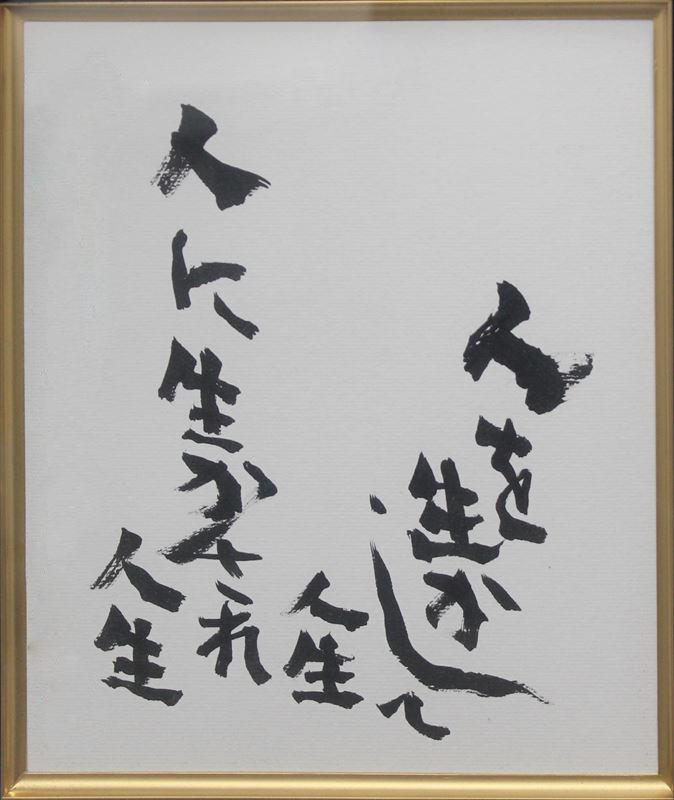 人を
生か
して
人生
人に生かされ
人生